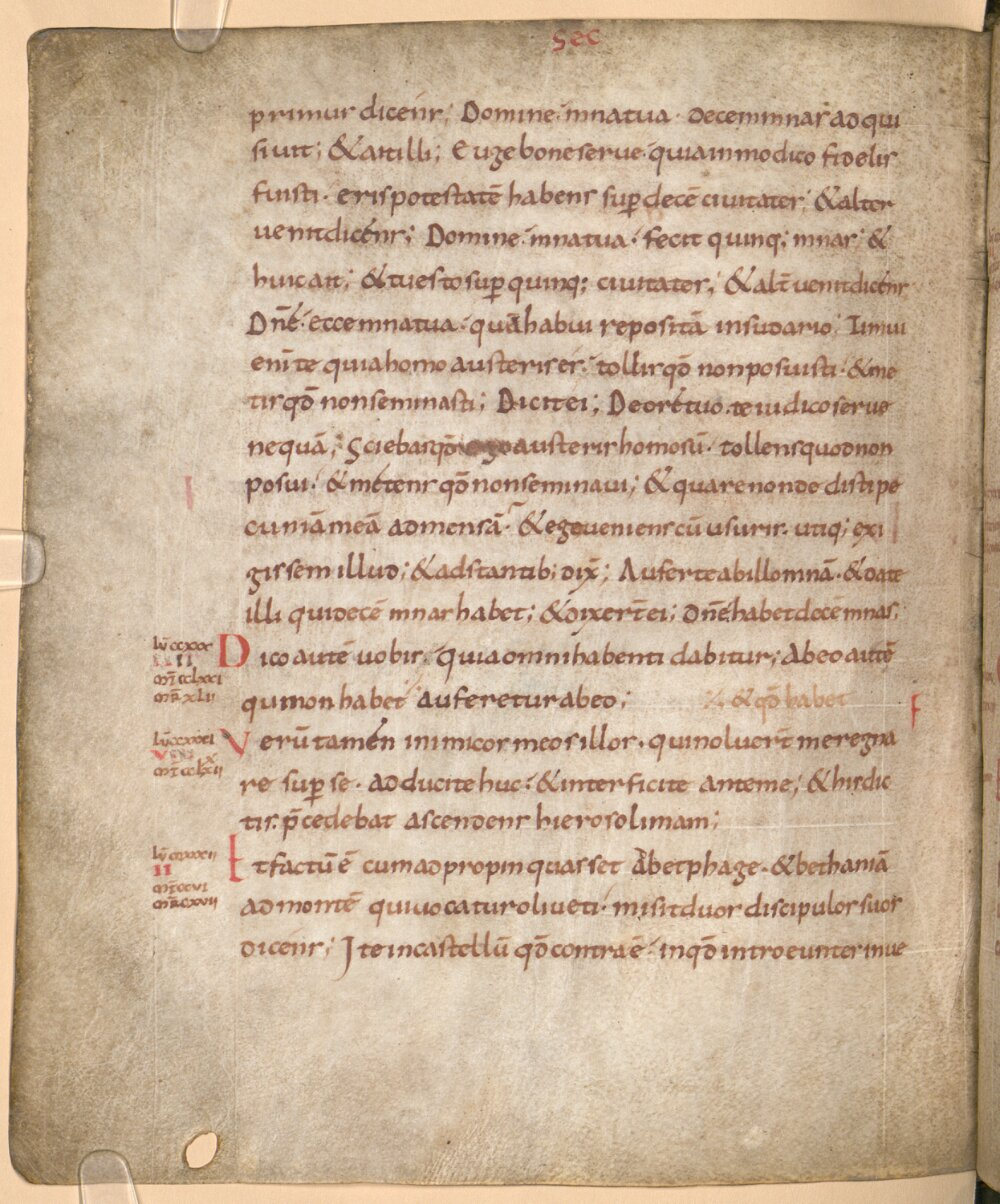 sec
primus dicens; Domine· mna tua· decem mnas adqui
sivit; & ait illi; Euge bone serve· quia in modico fidelis
fuisti· eris potestatē habens sup̄ decē civitates; & alter
venit dicens; Domine· mna tua· fecit quinq; mnas; &
huic ait; & tu esto sup̄ quinq; civitates; & alt̄ venit dicens
Dnē· ecce mna tua· quā habui repositā in sudario; Timui
eni̅ te quia homo austeris es· tollis qđ non posuisti· & me
tis qđ non seminasti; Dicit ei; De ore tuo· te iudico serve
nequā; Sciebas qđ ego austeris homo sū· tollens quod non
posui· & metens qđ non seminavi; & quare non dedisti pe
cuniā meā ad mensā· & ego veniens cū usuris· utiq; exi
gissem illud; & adstantib; dix̄; Auferte ab illo mnā· & date
illi qui decē mnas habet; & dixer̄t ei; dnē habet decē mnas;
Dico autē vobis· quia omni habenti dabitur; Ab eo autē
qui non habet auferetur ab eo; ·/· & qđ habet
Verūtamen inimicos meos illos· qui noluer̄t me regna
re sup̄ se· adducite huc· & interficite ante me; & his dic
tis· p̄cedebat ascendens hierosolimam;
Et factū ē cum adpropinquasset Ad betphage· & bethaniā
ad montē qui vocatur oliveti· misit duos discipulos suos
dicens; Ite in castellū qđ contra ē· in qđ introeuntes inve